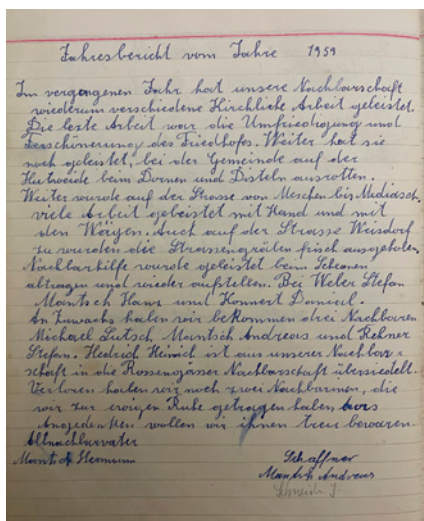 Jahresbericht vom Jahre 1959
Im vergangenen Jahr hat unsere Nachbarschaft
wiederum verschiedene Kirchliche Arbeit geleistet.
Die lezte Arbeit war die Umfriedigung und
Ferschönerung des Friedhofes. Weiter hat sie
noch geleistet, bei der Gemeinde auf der
Hutweide beim Dornen und Disteln ausrotten.
Weiter wurde auf der Strasse von Meschen bis Mediasch
viele Arbeit geleistet mit Hand und mit
den Wägen. Auch auf der Strasse Weisdorf
zu wurden die Strassengräben frisch ausgehoben
Nachbarhilfe wurde geleistet beim Scheonen
abtragen und wieder aufstellen. Bei Weber Stefan
Mantsch Hans und Konnert Daniel.
An Zuwachs haben wir bekommen drei Nachbarren
Michael Lutsch, Mantsch Andreas und Rehner
Stefan. Hedrich Heinrich ist aus unserer Nachbar-
schaft in die Rossengässer Nachbarschaft übersiedelt.
Verloren haben wir noch zwei Nachbarinen, die
wir zur ewigen Ruhe getragen haben,
Angedenken wollen wir ihnen treu bewaren.
Altnachbarvater
Mantsch Hermann
Schaffner
Mantsch Andreas